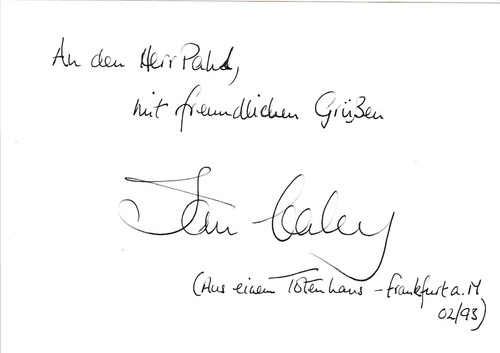 An den Herr Pahd,
mit freundlichen Grüßen
Ian Caley
(Aus einem Totenhaus - Frankfurt a. M
02/93)